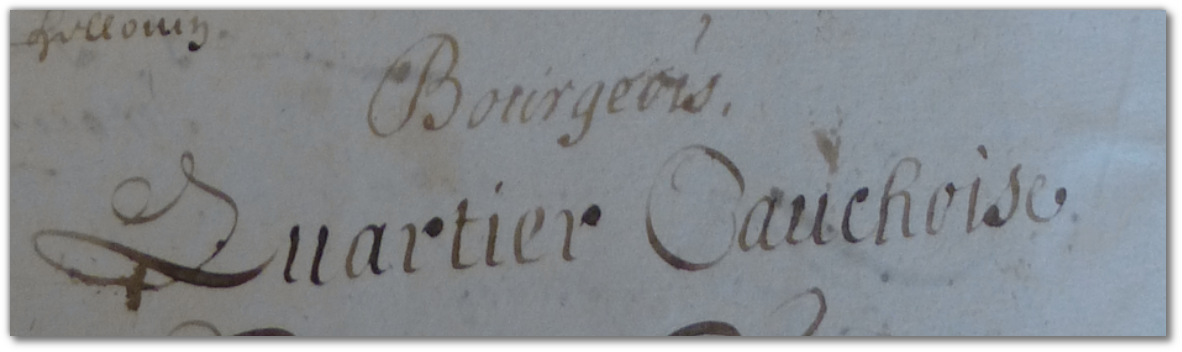 Bourgeois.
Quartier Cauchoise.